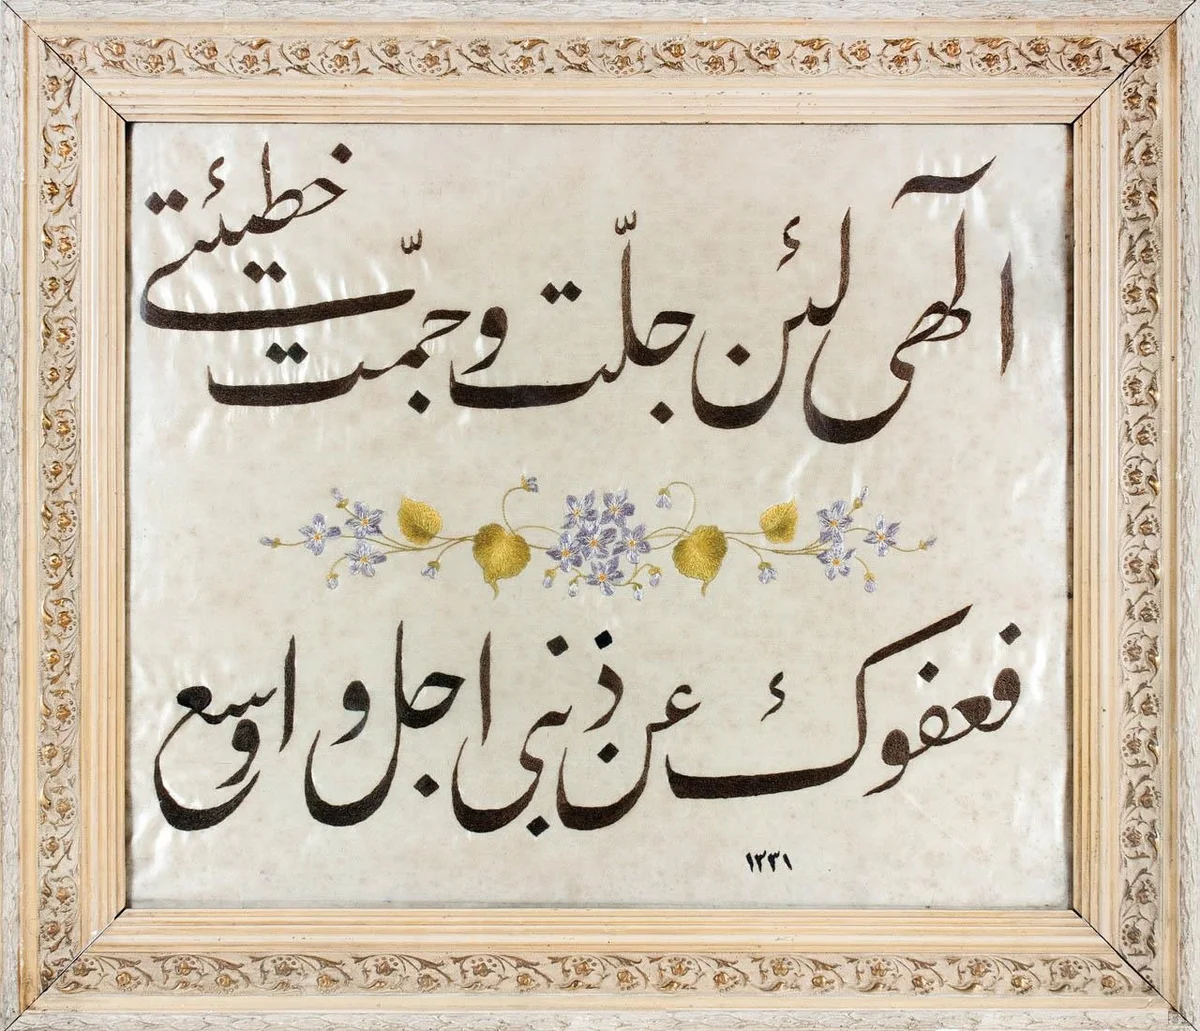 الٓهی لئن جلّت و جمّت خطیئتی
فعفوک عن ذنبی اجل و اوسع
١٣٣١